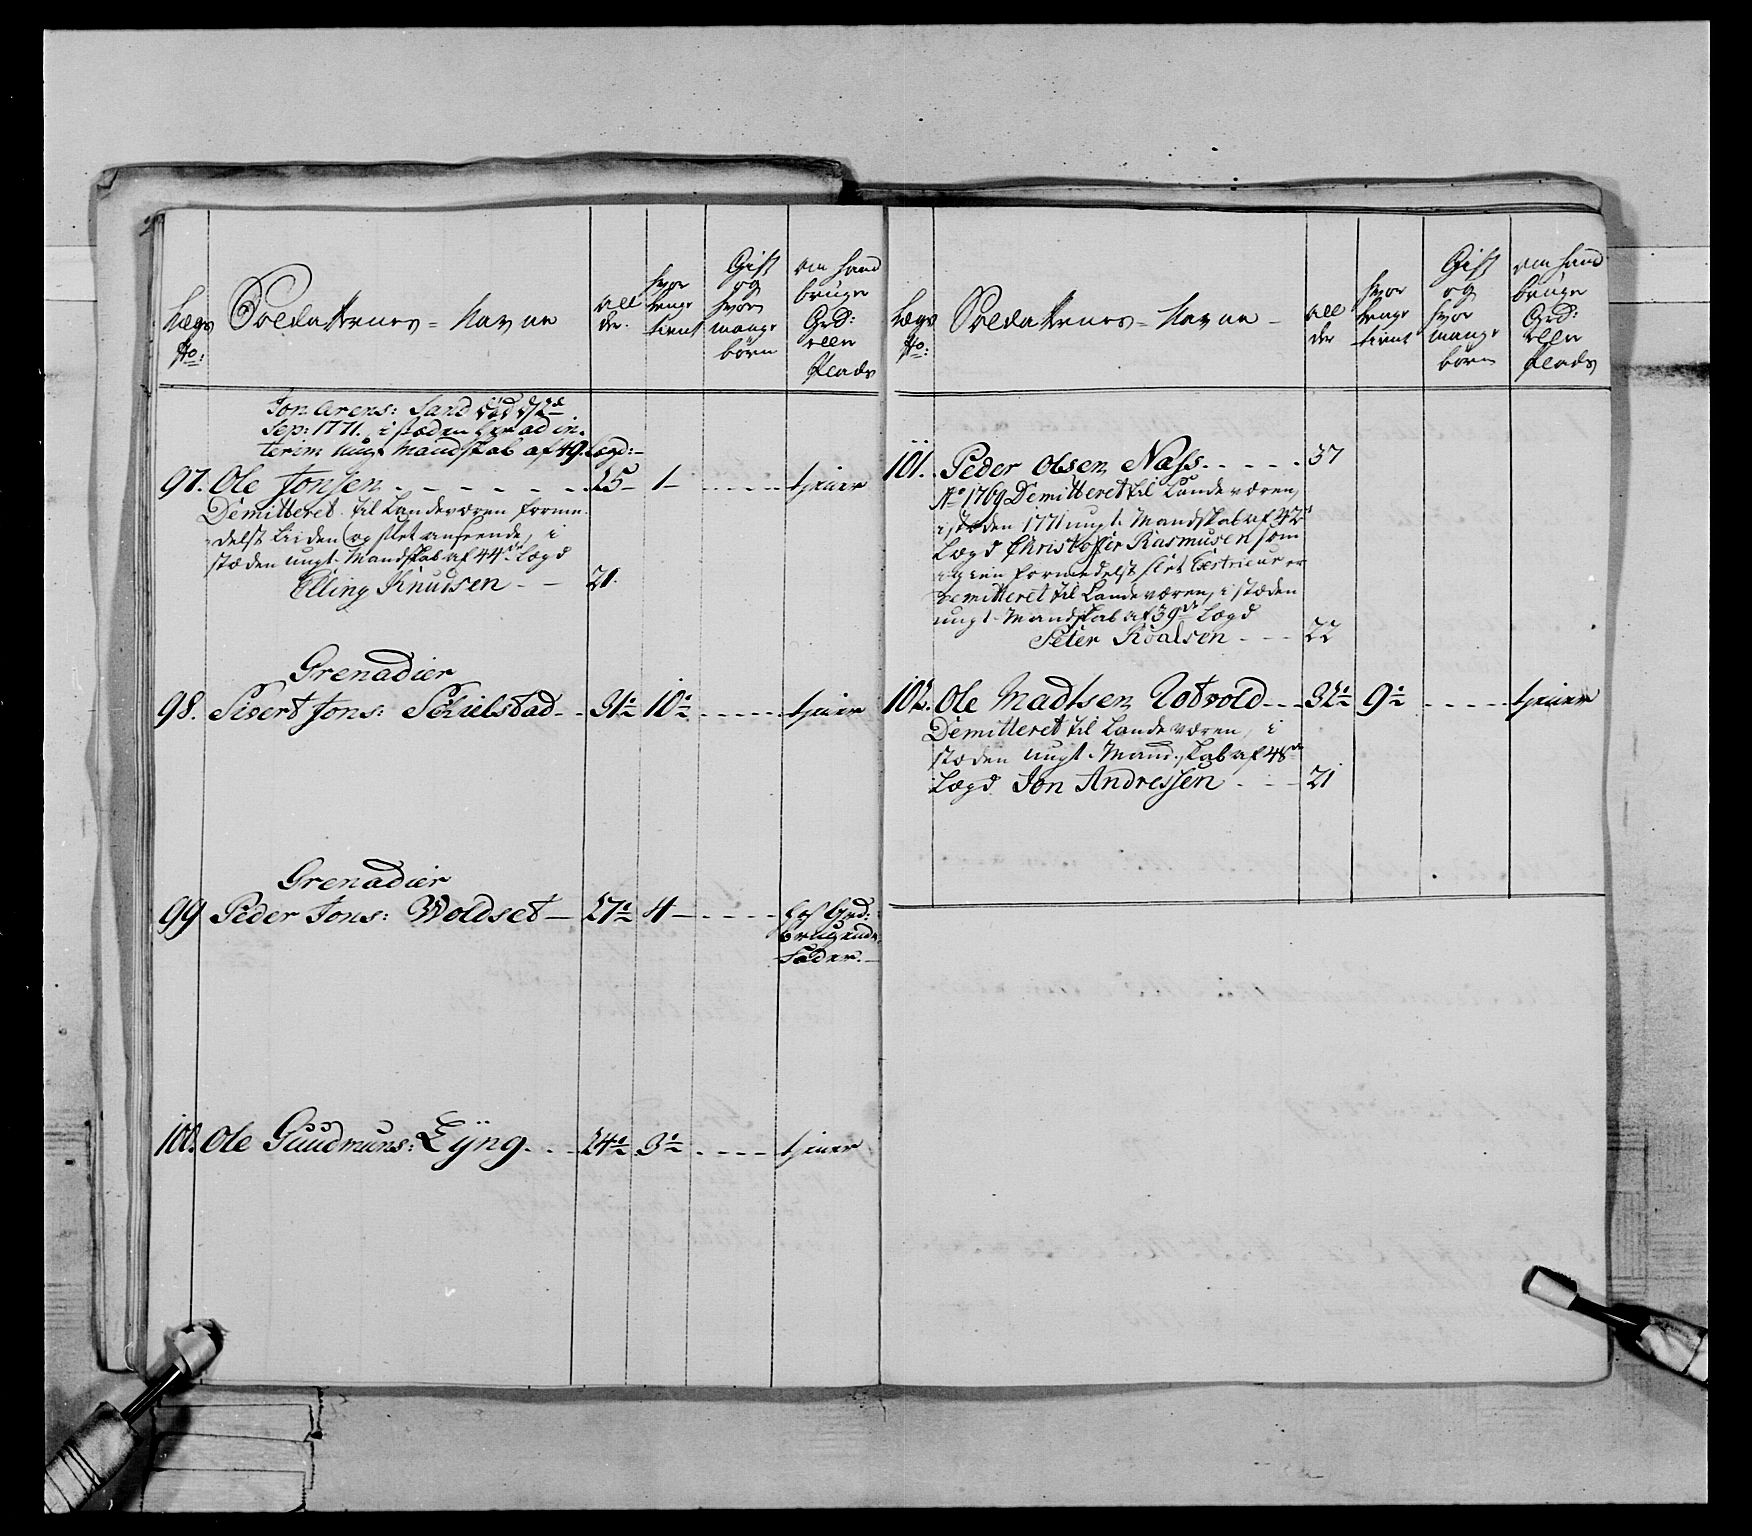 Lægs
No:
Soldatternes = Navne
All
der.
hvor
længe
tient
Gift
og
hvor
mange
børn
om hand
bruger
Grd:
eller
Plads
Jon Arens: Sand død d
Sep: 1771. i stæden her ad in-
terim ungt Mandskab af 49. Lægd:
97. Ole Jonsen 25 1 tjener
Demitteret til Landeværen forme-
delst Liiden og slet anseende, i
stæden ungt Mandskab af 44de Lægd
Elling Knudsen 21.
Grenadier
98. Sivert Jons: Schielstad 31½ 10½ tjener
Grenadier
99 Peder Jons: Woldset 27½ 4 hos Grd:
brugende
Fader.
100. Ole Guudmuns: Lÿng 24½ 3½ tjener
Lægs
No:
Soldatternes = Navne
All
der
hvor
længe
tient
Gift
og
hvor
mange
børn
om hand
bruger
Grd:
eller
Plads
101. Peder Olsen Næss 37
Ao 1769 Demitteret til Landeværen,
i stæden 1771 ungt Mandskab af 42de
Lægd Christoffer Rasmusen som
igien formedelst slet Exterieur er
demitteret til Landeværen, i stæden
ungt Mandskab af 39de Lægd
Peter Roalsen 22
102. Ole Madtsen Totvold 32½ 9½ tjener
Demitteret til Landeværen, i
stæden ungt Mandskab af 48de
Lægd Jon Andressen 21